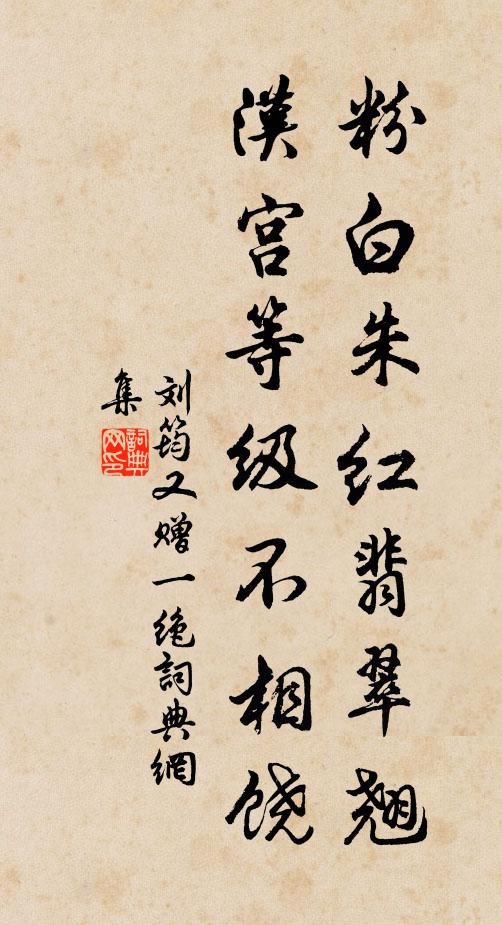 粉白朱红翡翠翘
漢宫等级不相饶
刘筠又赠一绝詞典網
集
詞典网印